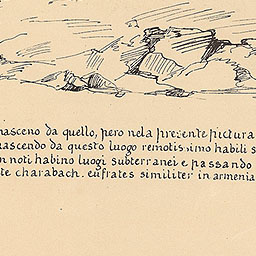 nasceno da quello, pero nela presente pictura
nascendo da questo luogo remotissimo habili s
n noti habino luogi subterranei e passando
te charabach. eufrates similiter in armenia